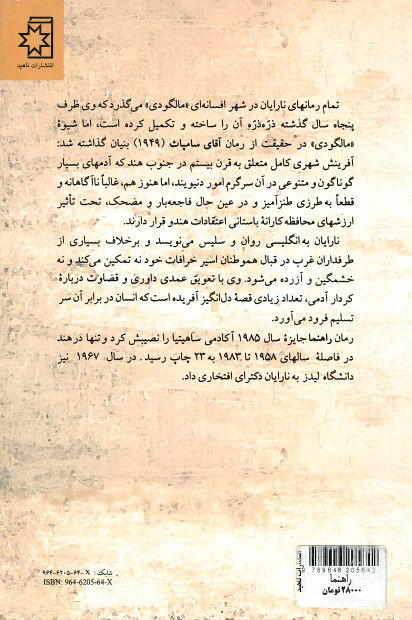 انتشارات ناهید
تمام رمانهای نارایان در شهر افسانه‌ای «مالگودی» می‌گذرد که وی ظرف
پنجاه سال گذشته ذره‌ذرّه آن را ساخته و تکمیل کرده است، اما شیوهٔ
«مالگودی» در حقیقت از رمان آقای سامپات (۱۹۴۹) بنیان گذاشته شد:
آفرینش شهری کامل متعلق به قرن بیستم در جنوب هند که آدمهای بسیار
گوناگون و متنوعی در آن سرگرم امور دنیویند، اما هنوز هم، غالباً ناآگاهانه و
قطعاً به طرزی طنزآمیز و در عین حال فاجعه‌بار و مضحک، تحت تأثیر
ارزشهای محافظه کارانهٔ باستانی اعتقادات هندو قرار دارند.
نارایان به انگلیسی روان و سلیس می‌نویسد و برخلاف بسیاری از
طرفداران غرب در قبال هموطنان اسیر خرافات خود نه تمکین می‌کند و نه
خشمگین و آزرده می‌شود. وی با تعویق عمدی داوری و قضاوت دربارهٔ
کردار آدمی، تعداد زیادی قصهٔ دل‌انگیز آفریده است که انسان در برابر آن سر
تسلیم فرود می‌آورد.
رمان راهنما جایزهٔ سال ۱۹۸۵ آکادمی ساهیتیا را نصیبش کرد و تنها در هند
در فاصلهٔ سالهای ۱۹۵۸ تا ۱۹۸۳ به ۲۳ چاپ رسید. در سال ۱۹۶۷ نیز
دانشگاه لیدز به نارایان دکترای افتخاری داد.
شابک: X -۶۴-۶۲۰۵-۹۶۴
ISBN: 964-6205-64-X
انتشارات ناهید
789646 205642
راهنما
۲۸۰۰۰تومان